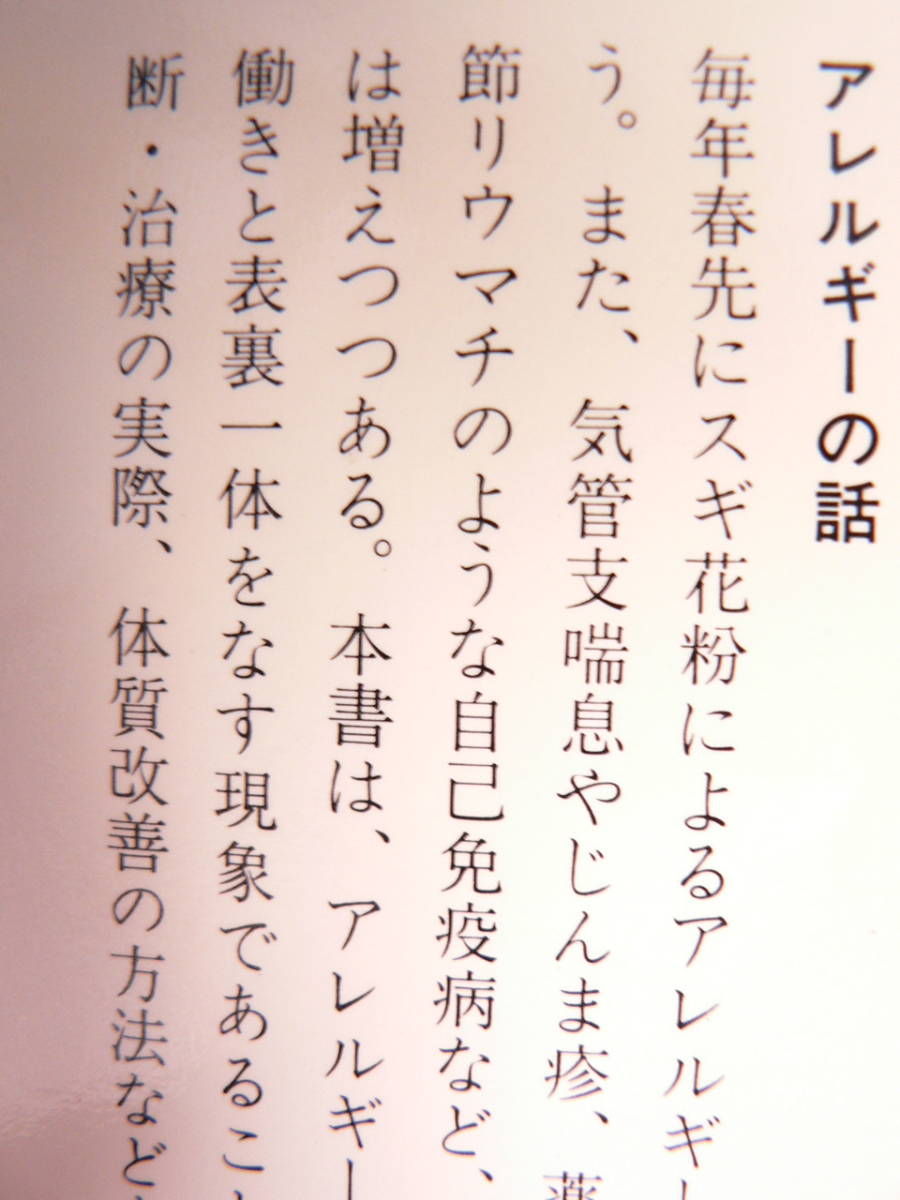 アレルギーの話
毎年春先にスギ花粉によるアレルギー
う。また、気管支喘息やじんま疹、薬
節リウマチのような自己免疫病など、
は増えつつある。本書は、アレルギー
働きと表裏一体をなす現象であるこ
断・治療の実際、体質改善の方法など